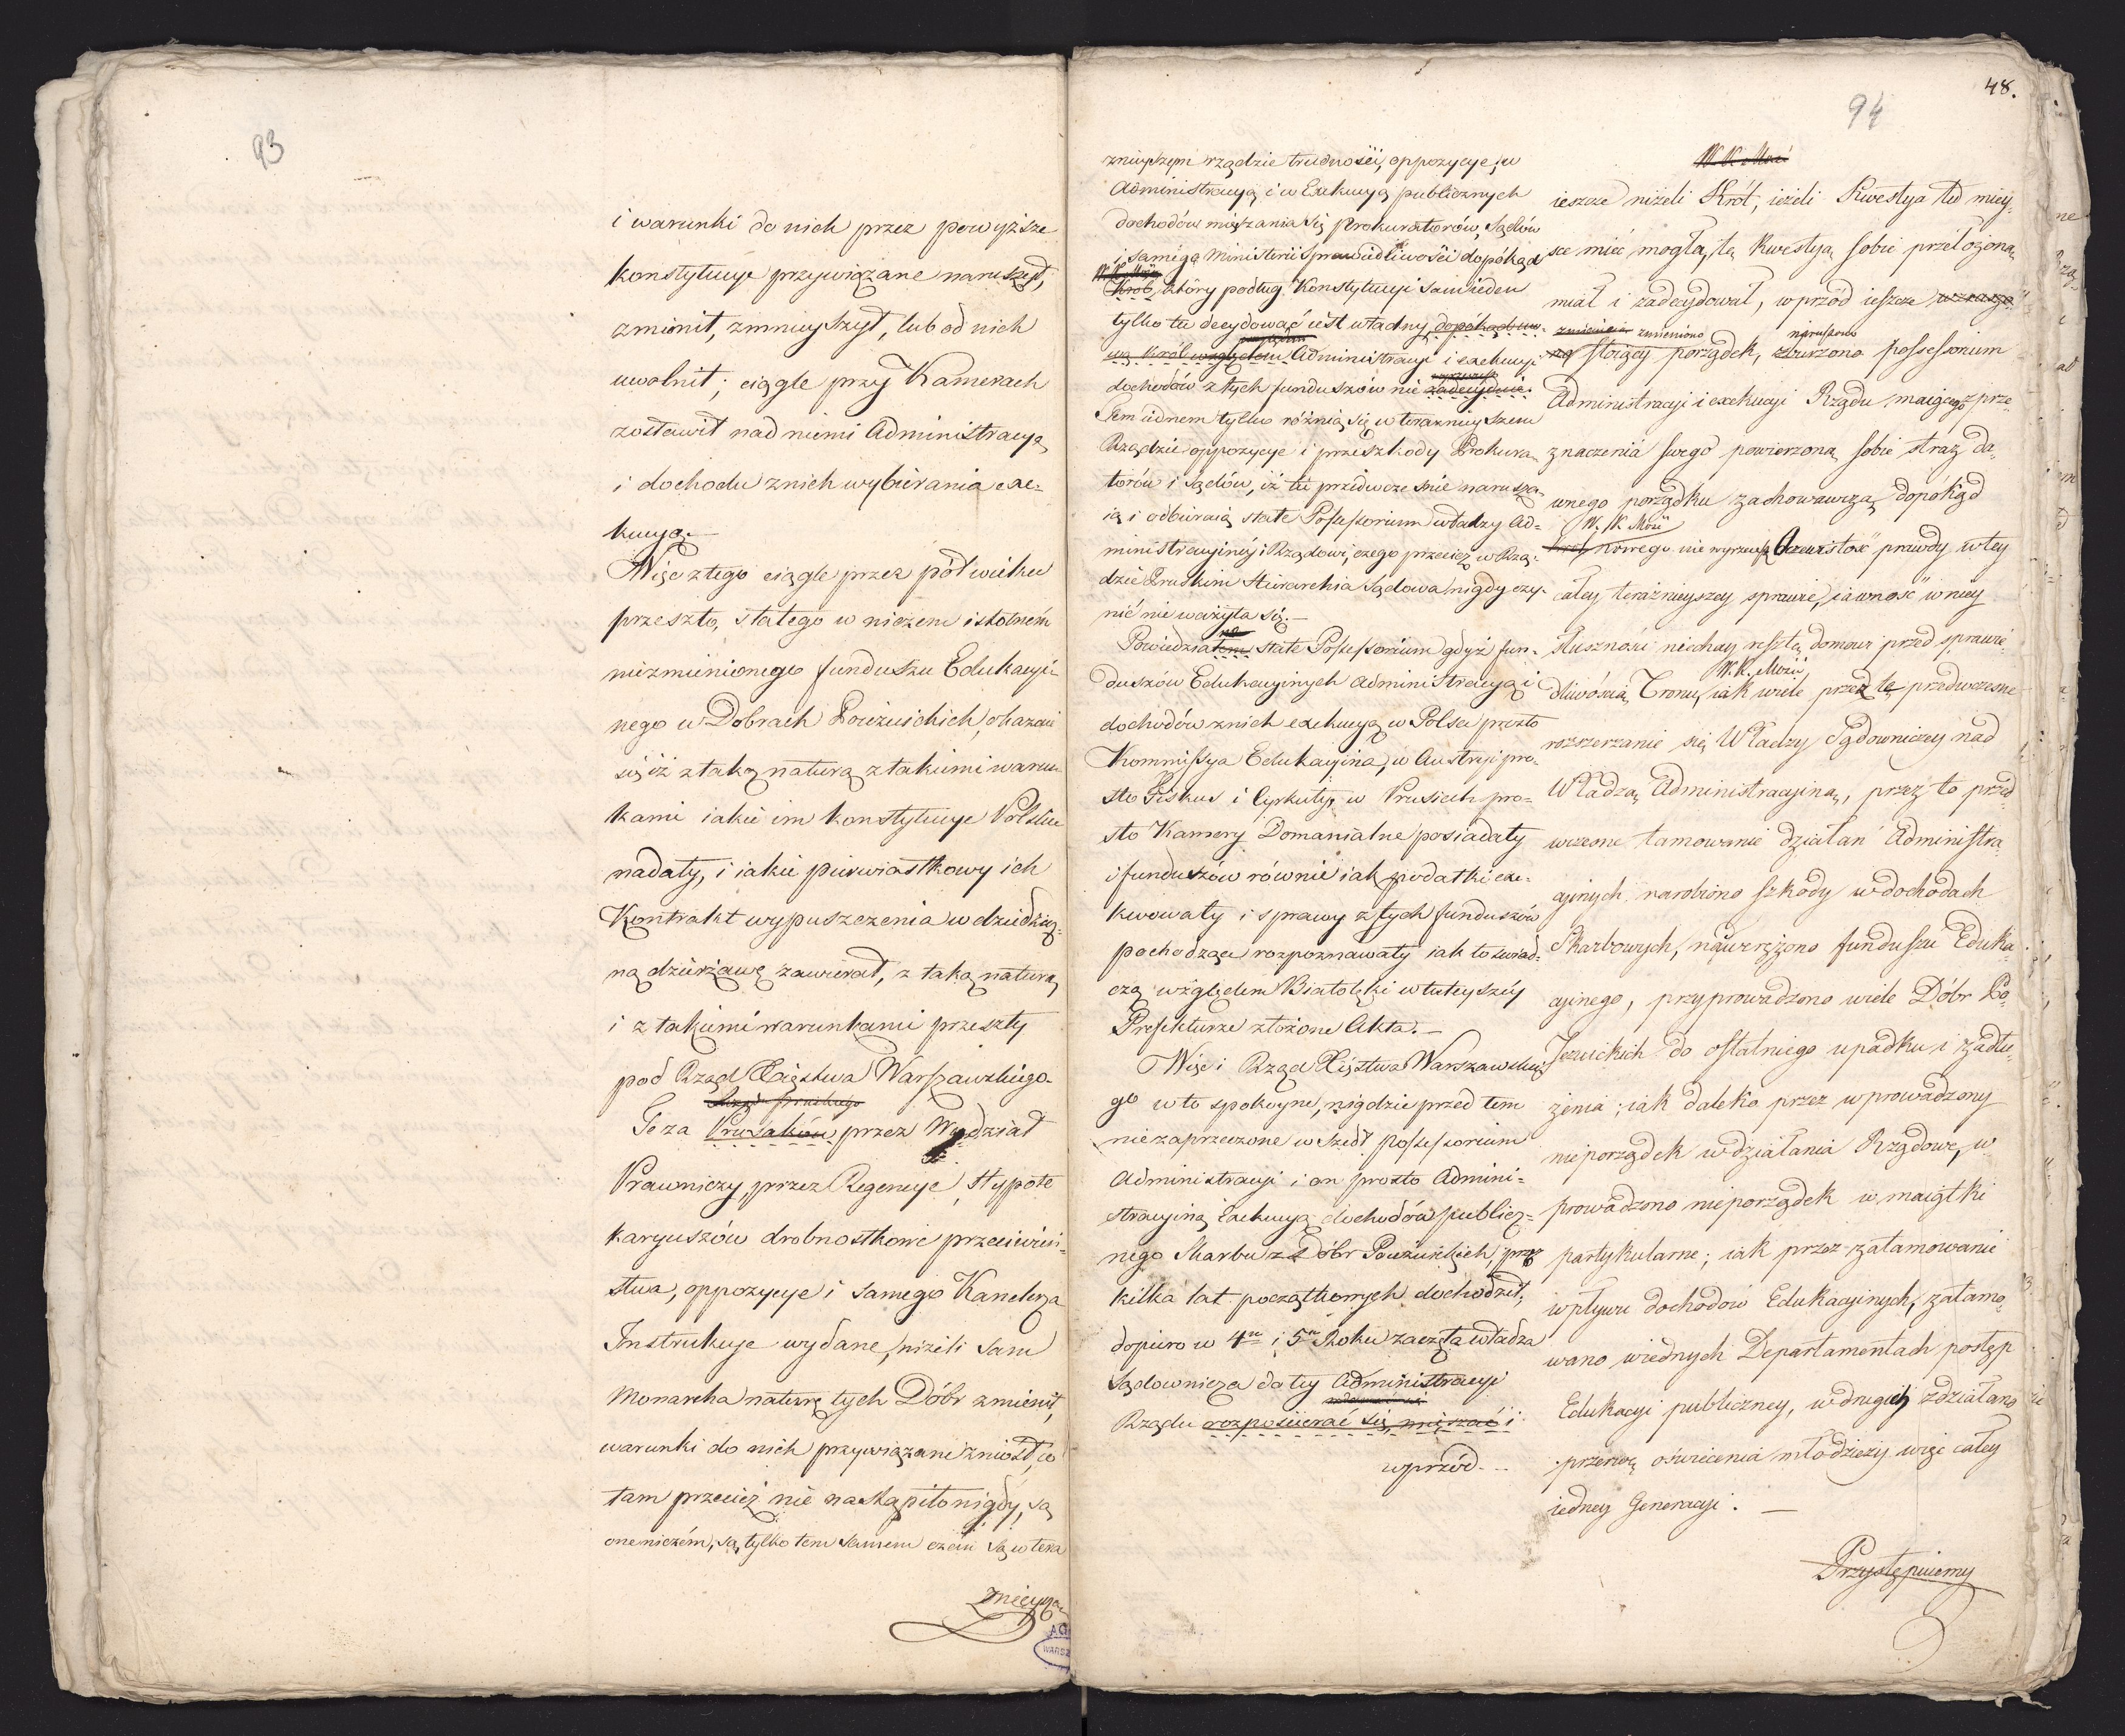 93
i warunki do nich przez powyższe
konstytucye przywiązane naruszył,
zmienił, zmnieyszył, lub od nich
uwolnił; ciągle przy Kamerach
zostawił nad niemi Administracyą,
i dochodu z nich wybierania exe=
kucyą.—
Więc z tego ciągle przez pół wieku
przeszło, stałego w niczem istotném
niezmienionego funduszu Edukacyi=
nego w Dobrach Poiezuickich, okazuie
się iż z taką naturą z takiemi warun=
kami iakie im konstytucye Polskie
nadały, i iakie pierwiastkowy ich
Kontrakt wypuszczenia w dziedzicz=
ną dzierżawę zawierał, z taką naturą
i z takiemi warunkami przeszły
pod Rząd Xięstwa Warszawskiego.
Rządu Pruskiego
Te za Prusaków przez Wydział
Prawniczy przez Regencye, Hypote
karyuszów drobnostkowe przeciwień=
stwa, oppozycye i samego Kanclerza
Instrukcye wydane, niżeli sam
Monarcha naturę tych Dóbr zmienił,
warunki do nich przywiązane zniósł, co
tam przecież nie nastąpiło nigdy, są
one niczém, są tylko tem samem czem są w tera
znieysze
48.
94
znieyszem rządzie trudności, oppozycye, w
Administracyą i w Exekucyą publicznych
dochodów mięszania się Prokuratorów, Sądów
i samego Ministerii Sprawiedliwości dopókąd
W. K. Mość
Król, który podług Konstytucyi sam ieden
tylko tu decydować iest władny, dopókąd mó=
wą Król względem Administracyi i exekucyi
dochodów z tych funduszów nie zadecyduie.
Tem iednem tylko różnią się w teraznieyszem
Rządzie oppozycye i przeszkody Prokura=
torów i Sądów, iż tu przedwcześnie narusza=
ią i odbieraią stałe Possessorium władzy Ad=
ministracyinéy i Rządowi, czego przecież w Rzą=
dzie Pruskim Hierarchia Sądowa nigdy czy=
nić nie ważyła się.—
Powiedziałem stałe Possessorium gdyż fun=
duszów Edukacyinych administracyą i
dochodów z nich exekucyą w Polscze prosto
Kommissya Edukacyina, w Austryi pro=
sto Fiskus i Cyrkuły, w Prusiech pro=
sto Kamery Domanialne posiadały
i funduszów równie iak podatki exe=
kwowały i sprawy z tych funduszów
pochodzące rozpoznawały iak to świad=
czą względem Białołęki w tuteyszéy
Prefekturze złożone Akta.—
Więc i Rząd Xięstwa Warszawskie=
go w to spokoyne, nigdzie przed tem
niezaprzeczone wszedł possessorium
Administracyi i on prosto Admini=
stracyiną Exekucyą dochodów publicz=
nego Skarbu z Dóbr Poiezuickich, przez
kilka lat początkowych dochodził,
dopiero w 4m i 5m Roku zaczęła władza
Sądownicza do tey Administracyi
Rządu rozpościerać się, mięszać i
wprzód...
W. K. Mość
ieszcze niżeli Król, ieżeli Kwestya tu miey=
sce mieć mogła, tę kwestyą sobie przełożoną
miał i zadecydował, wprzód ieszcze
zmieniono naruszono
stoiący porządek, zburzono possessorium
Administracyi i exekucyi Rządu, maiącego z prze=
znaczenia swego powierzoną sobie straż da=
wnego porządku zachowawczą, dopókąd
W. K. Mość
Król nowego nie wyrzecze. Oczewistość prawdy w tey
całey teraznieyszey sprawie, iawność w niey
słuszności niechay resztę domowi przed sprawie=
W. K. Mości,
dliwością Tronu, iak wiele przez tę przedwczesne
rozszerzanie się Władzy Sądowniczey nad
Władzą Administracyiną, przez to przed=
wczesne tamowanie działań Administra=
cyinych narobiono szkody w dochodach
Skarbowych, nadwerężono funduszu Eduka=
cyinego, przyprowadzono wiele Dóbr Po=
Jezuickich do ostatniego upadku i zadłu=
żenia; iak daleko przez wprowadzony
nieporządek w działania Rządowe, w
prowadzono nieporządek w maiątki
partykularne; iak przez zatamowanie
wpływu dochodów Edukacyinych, zatamo=
wano w iednych Departamentach postęp
Edukacyi publiczney, w drugich zdziałano
przerwę oświecenia młodzieży więc całey
iedney Generacyi.—
Przystępuiemy